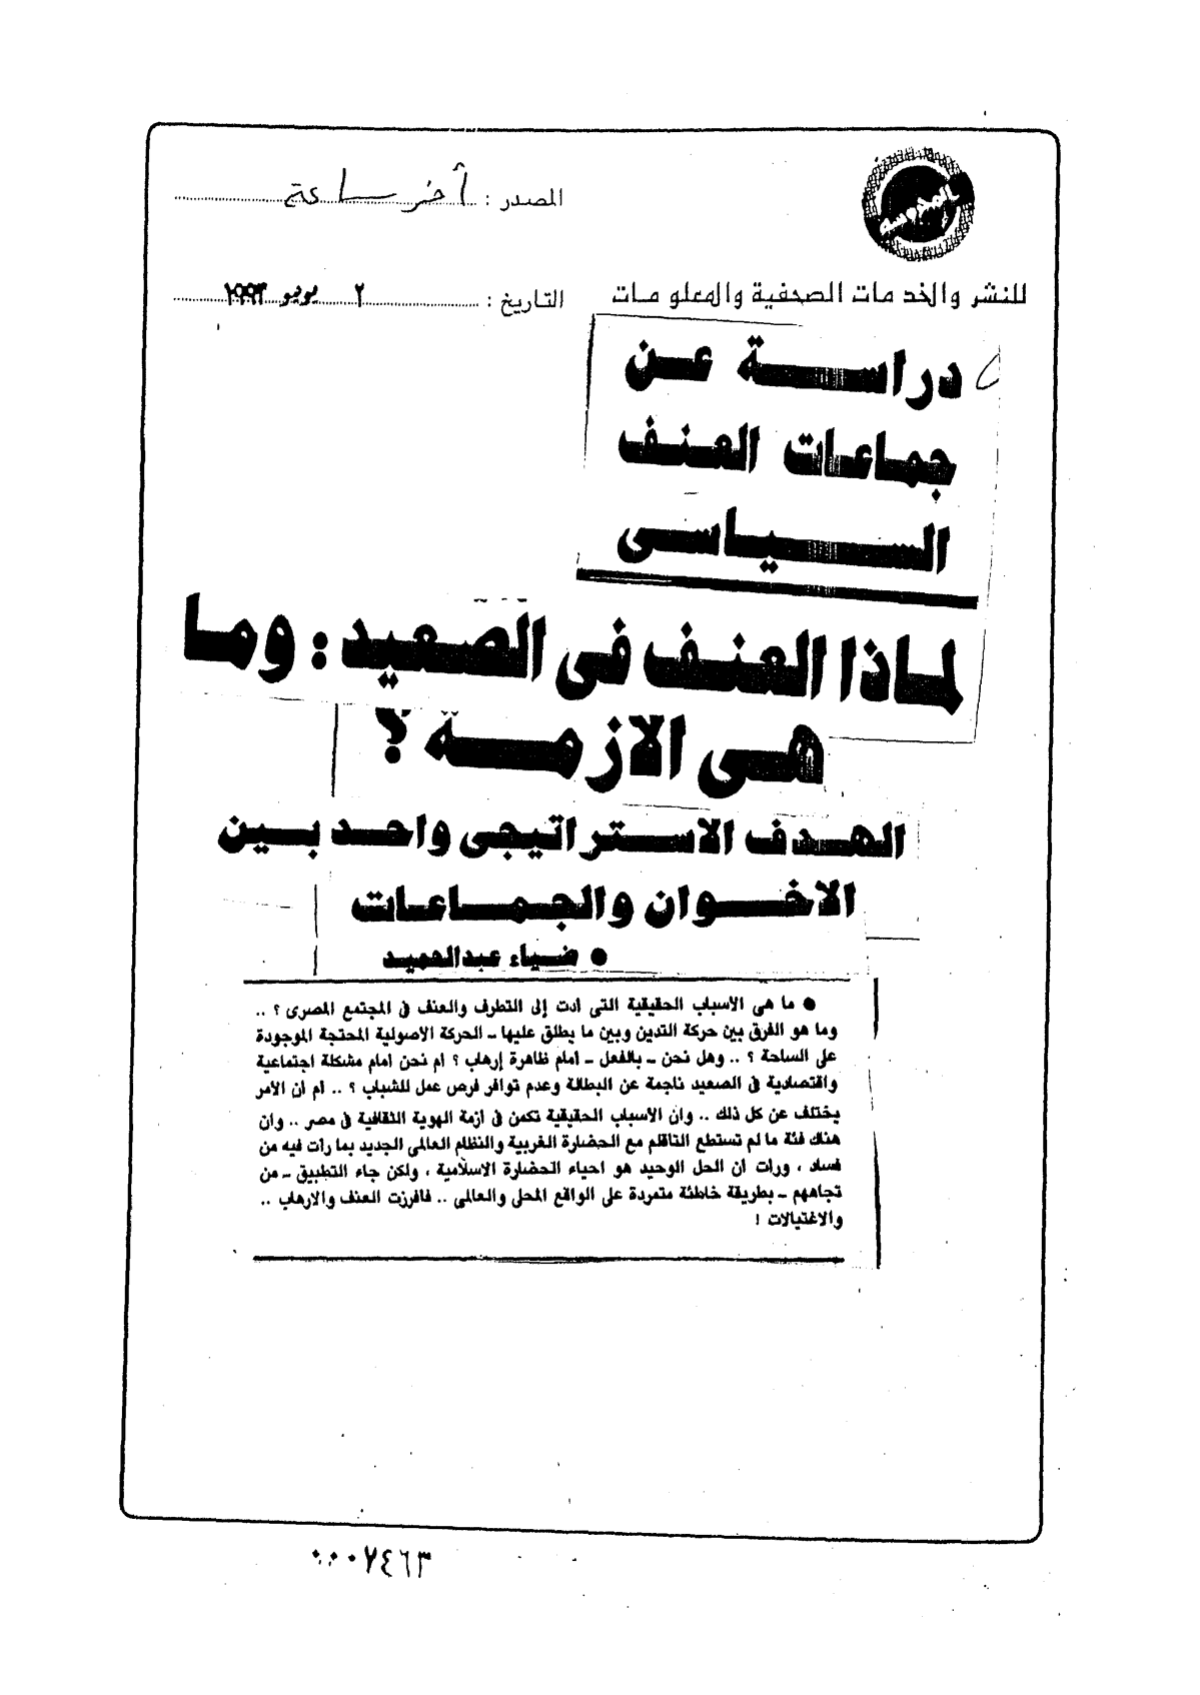 المحروسة
المصدر : آخر ساعة
للنشر والخدمات الصحفية والمعلومات
التاريخ : ٢ يونيو ١٩٩٣
دراسة عن
جماعات العنف
السياسى
لماذا العنف فى الصعيد : وما
هى الازمة ؟
الهدف الاستراتيجى واحد بين
الاخوان والجماعات
● ضياء عبدالحميد
● ما هى الأسباب الحقيقية التى أدت إلى التطرف والعنف فى المجتمع المصرى ؟ ..
وما هو الفرق بين حركة التدين وبين ما يطلق عليها - الحركة الأصولية المحتجة الموجودة
على الساحة ؟ .. وهل نحن - بالفعل - امام ظاهرة إرهاب ؟ ام نحن امام مشكلة اجتماعية
واقتصادية فى الصعيد ناجمة عن البطالة وعدم توافر فرص عمل للشباب ؟ .. ام ان الأمر
يختلف عن كل ذلك .. وان الأسباب الحقيقية تكمن فى ازمة الهوية الثقافية فى مصر .. وان
هناك فئة ما لم تستطع التاقلم مع الحضارة الغربية والنظام العالمى الجديد بما رات فيه من
فساد ، ورات ان الحل الوحيد هو احياء الحضارة الاسلامية ، ولكن جاء التطبيق - من
تجاههم - بطريقة خاطئة متمردة على الواقع المحلى والعالمى .. فافرزت العنف والارهاب ..
والاغتيالات !
٠٠٠٧٤٦٣